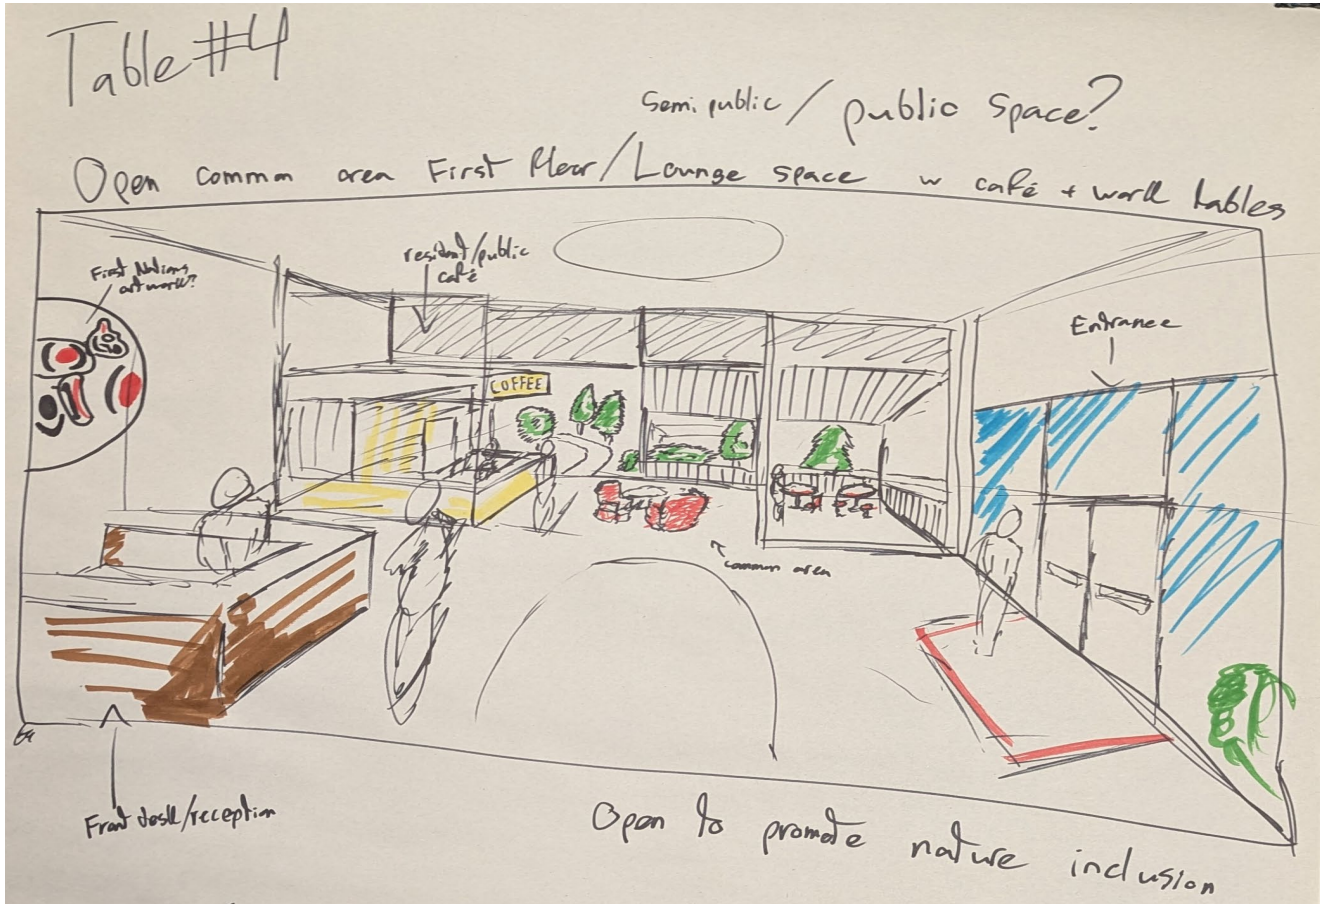 Table #4
Semi public / public space?
Open common area First floor / Lounge space w café + work tables
First Nations
artwork?
resident/public
café
Entrance
COFFEE
common area
Front desk/reception
Open to promote nature inclusion